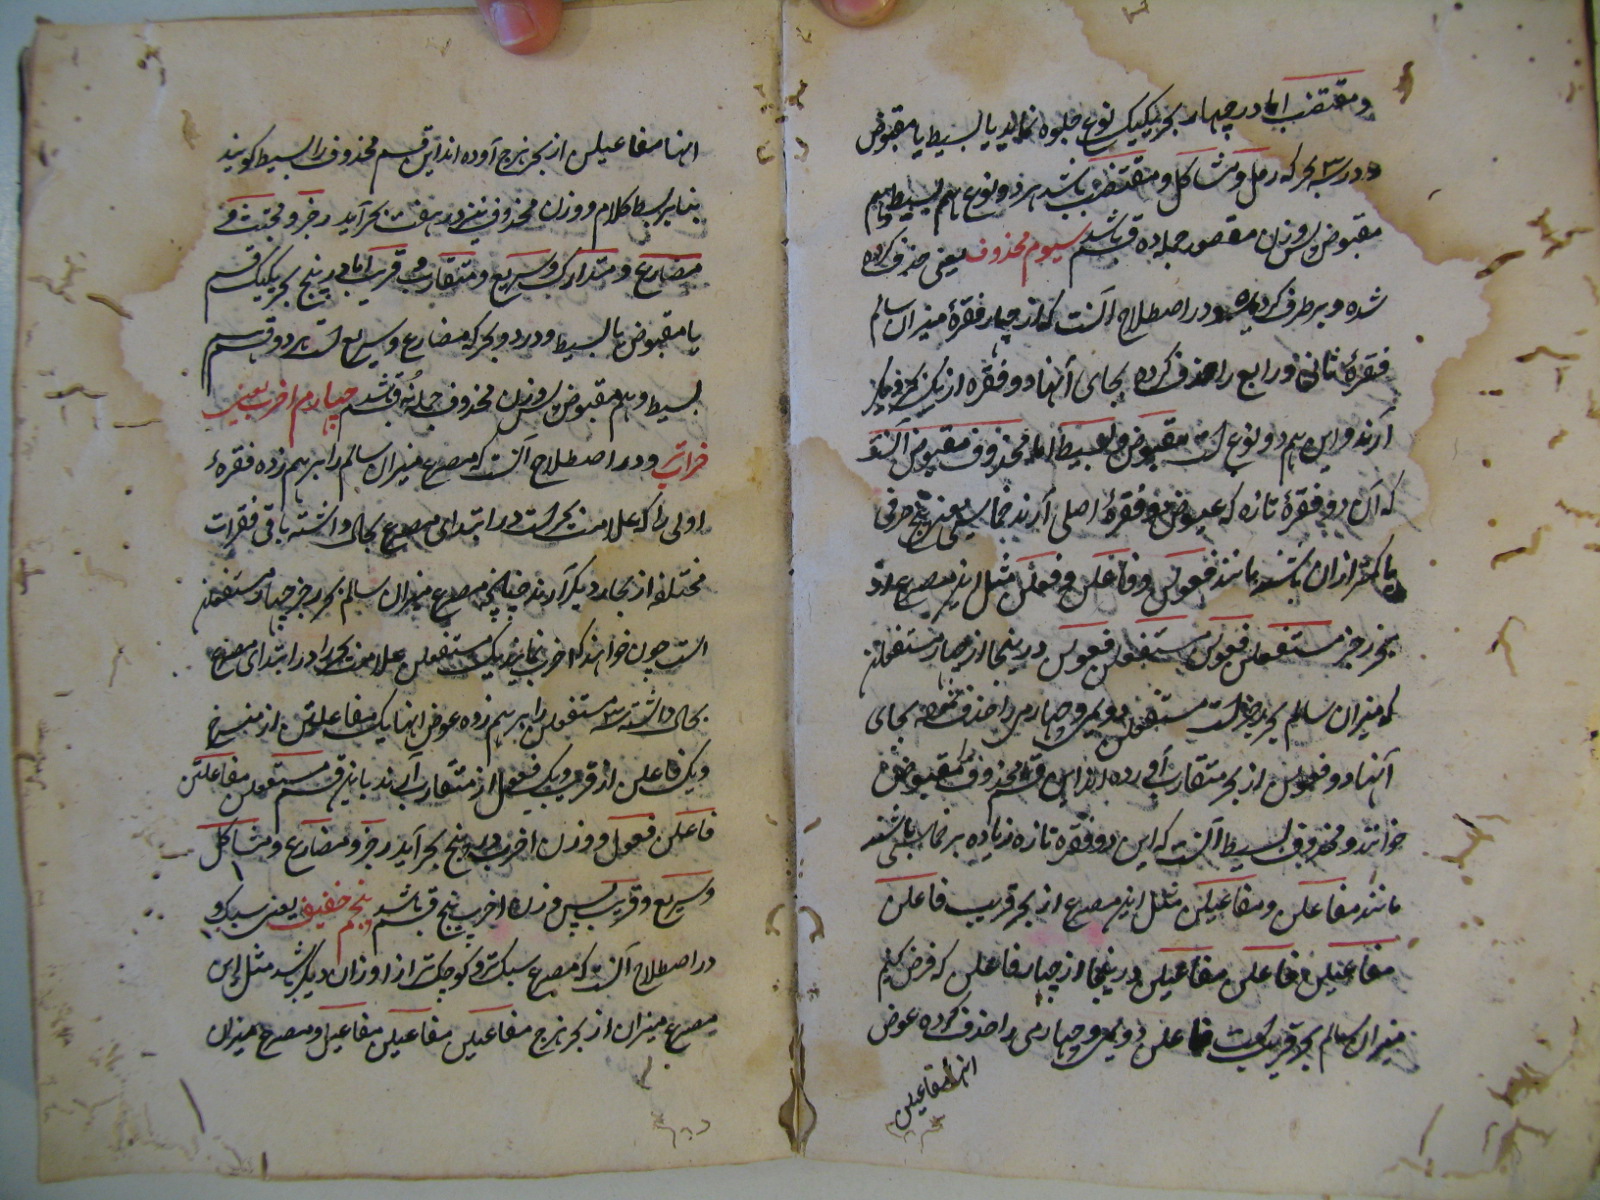 و مقتضب اما در چهار بحر یکیک نوع جلوه نماید یا بسیط یا مقبوض
و در سه بحر که رمل و مشاکل و مقتضب باشد هر دو نوع باهم بسیط و هم
مقبوض پس وزن مقصور جمله ده قسم باشد سیوم محذوف یعنی حذف کرده
شده و برطرف کرده شده و در اصطلاح آنست که از چهار فقرهٔ میزان سالم
فقرهٔ ثانی و رابع را حذف کرده بجای آنها دو فقره از یک بحر دیگر
آرند و این هم دو نوع است مقبوض و بسیط اما محذوف مقبوض آنست
که آن دو فقرهٔ تازه که عیوض دو فقرهٔ اصلی آرند خماسی یعنی پنج حرفی
یا کمتر ازان باشند مانند فعولن و فاعلن و فعلن مثل این مصرع
بحر رجز مستفعلن فعولن مستفعلن فعولن درینجا از چهار مستفعلن
که میزان سالم بحر رجز است مستفعلن دویمی و چهارمی را حذف نموده بجای
آنها دو فعولن از بحر متقارب آورده اند این قسم محذوف را مقبوض
خوانند و محذوف بسیط آنست که این دو فقره تازه زیاده بر خماسی باشند
مانند مفاعلن و مفاعیلن مثل این مصرع از بحر قریب فاعلن
مفاعیلن فاعلن مفاعیلن درینجا از چهار فاعلن که فرض کنیم
میزان سالم بحر قریب است فاعلن دویمی و چهارمی را حذف کرده عوض
انها مفاعیلن
انها مفاعیلن از بحر هزج آورده اند این قسم محذوف را بسیط گویند
بنابر بسط کلام و وزن محذوف نیز در هفت بحر آید رجز و مجتث و
مضارع و متدارک و سریع و متقارب و قریب اما در پنج بحر یکیک قسم
یا مقبوض یا بسیط و در دو بحر که مضارع و سریع است هر دو قسم
بسیط و هم مقبوض پس وزن محذوف جمله نه قسم باشد چهارم اخرب یعنی
خراب تر و در اصطلاح آنست که مصرع میزان سالم را برهم زده فقرهٔ
اولی را که علامت بحر است در ابتدای مصرع بحال داشته باقی فقرات
مختلفه از بحار دیگر آرند چنانچه مصرع میزان سالم بحر رجز چهار مستفعلن
است چون خواهند که اخرب نمایند یک مستفعلن علامت بحر را در ابتدای مصرع
بحال داشته سه مستفعلن را برهم زده عوض انها یک مفاعلتن از منسرح
و یک فاعلن از قریب و یک فعول از متقارب آرند باین قسم مستفعلن مفاعلتن
فاعلن فعول و وزن اخرب در پنج بحر آید رجز و مضارع و مشاکل
و سریع و قریب پس وزن اخرب پنج قسم باشد پنجم خفیف یعنی سبک و
در اصطلاح آنست که مصرع سبک تر و کوچک تر از اوزان دیگر باشد مثل این
مصرع میزان از بحر هزج مفاعیلن مفاعیلن مفاعیل و مصرع میزان